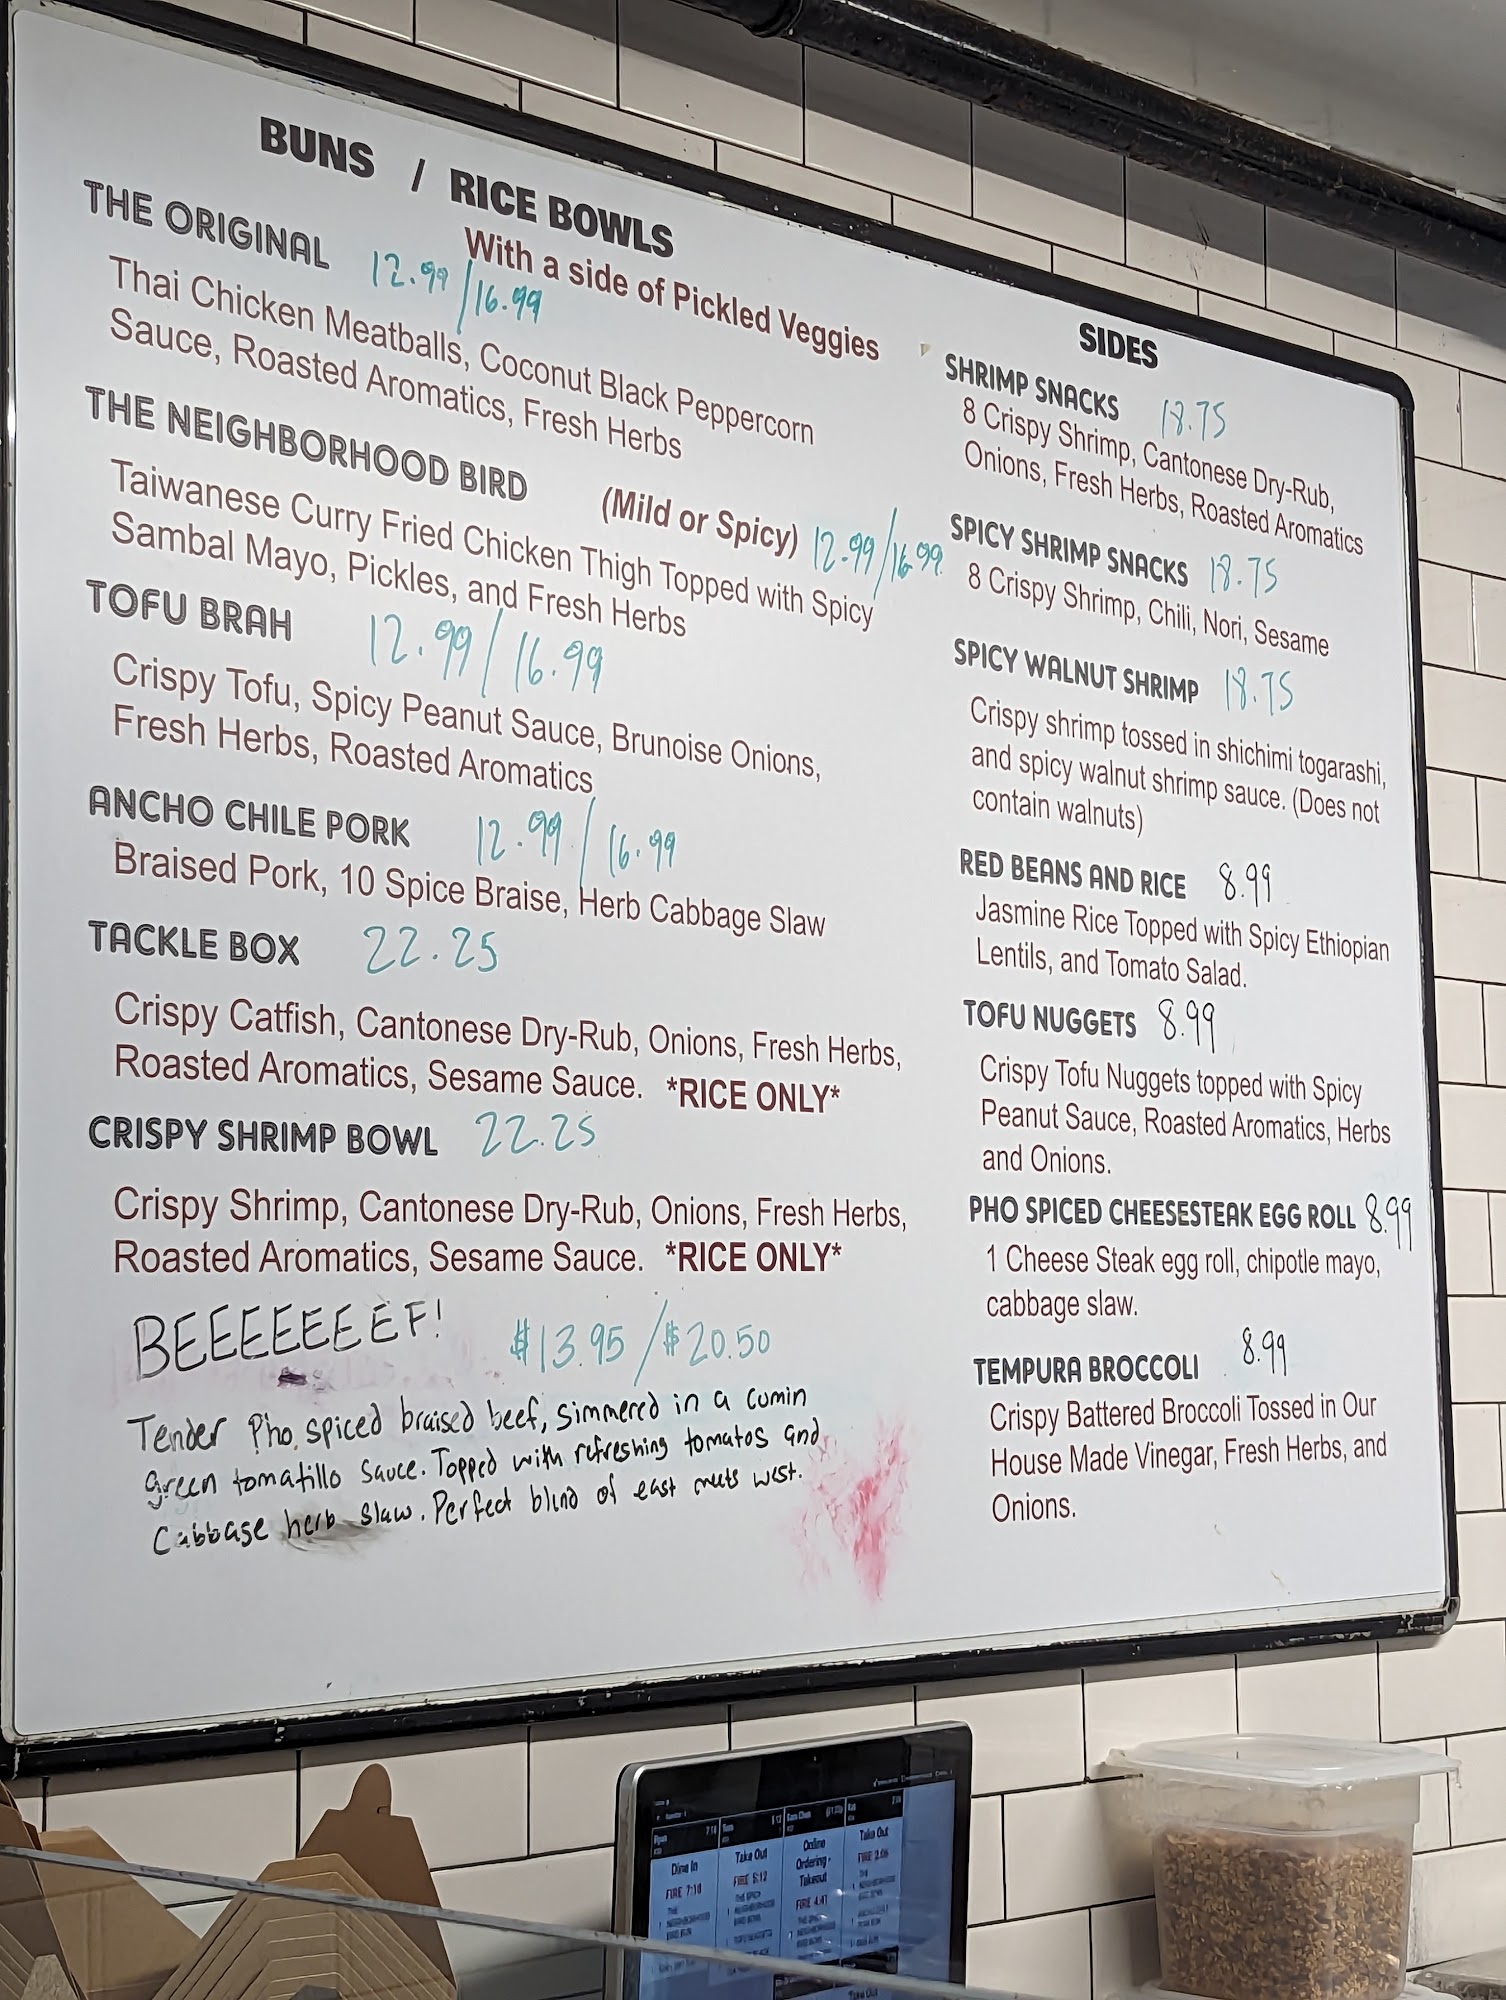 BUNS / RICE BOWLS
With a side of Pickled Veggies
THE ORIGINAL 12.99/16.99
Thai Chicken Meatballs, Coconut Black Peppercorn
Sauce, Roasted Aromatics, Fresh Herbs
THE NEIGHBORHOOD BIRD (Mild or Spicy) 12.99/16.99
Taiwanese Curry Fried Chicken Thigh Topped with Spicy
Sambal Mayo, Pickles, and Fresh Herbs
TOFU BRAH 12.99/16.99
Crispy Tofu, Spicy Peanut Sauce, Brunoise Onions,
Fresh Herbs, Roasted Aromatics
ANCHO CHILE PORK 12.99/16.99
Braised Pork, 10 Spice Braise, Herb Cabbage Slaw
TACKLE BOX 22.25
Crispy Catfish, Cantonese Dry-Rub, Onions, Fresh Herbs,
Roasted Aromatics, Sesame Sauce. *RICE ONLY*
CRISPY SHRIMP BOWL 22.25
Crispy Shrimp, Cantonese Dry-Rub, Onions, Fresh Herbs,
Roasted Aromatics, Sesame Sauce. *RICE ONLY*
BEEEEEEEF! $13.95/$20.50
Tender Pho spiced braised beef, simmered in a cumin
green tomatillo sauce. Topped with refreshing tomatos and
Cabbage herb slaw. Perfect blind of east meets west.
SIDES
SHRIMP SNACKS 18.75
8 Crispy Shrimp, Cantonese Dry-Rub,
Onions, Fresh Herbs, Roasted Aromatics
SPICY SHRIMP SNACKS 18.75
8 Crispy Shrimp, Chili, Nori, Sesame
SPICY WALNUT SHRIMP 18.75
Crispy shrimp tossed in shichimi togarashi,
and spicy walnut shrimp sauce. (Does not
contain walnuts)
RED BEANS AND RICE 8.99
Jasmine Rice Topped with Spicy Ethiopian
Lentils, and Tomato Salad.
TOFU NUGGETS 8.99
Crispy Tofu Nuggets topped with Spicy
Peanut Sauce, Roasted Aromatics, Herbs
and Onions.
PHO SPICED CHEESESTEAK EGG ROLL 8.99
1 Cheese Steak egg roll, chipotle mayo,
cabbage slaw.
TEMPURA BROCCOLI 8.99
Crispy Battered Broccoli Tossed in Our
House Made Vinegar, Fresh Herbs, and
Onions.
Dine In
FIRE 7:10
Take Out
FIRE 5:12
Online
Ordering -
Takeout
FIRE 4:41
Take Out
FIRE 2:06